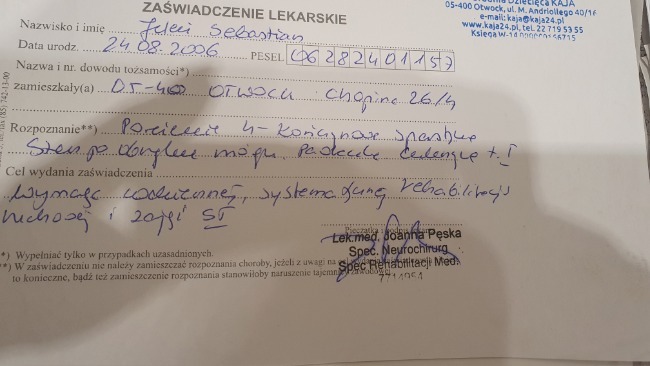 ZAŚWIADCZENIE LEKARSKIE
05-400 Otwock, ul. M. Andriollego 40/16
e-mail: kaja@kaja24.pl
www.kaja24.pl, tel. 22 719 53 55
Nazwisko i imię Sebastian
Data urodz. 24.08.2006 PESEL 06282401157
Nazwa i nr. dowodu tożsamości*)
zamieszkały(a) 05-400 OTWOCK Chopina 26/4
Rozpoznanie**) Porażenie 4-kończynowe spastyczne
Stan po obrzęku mózgu. Padaczka
Cel wydania zaświadczenia
Wymaga codziennej, systematycznej rehabilitacji
ruchowej i zajęć SI
Lek.med. Joanna Pęska
Spec. Neurochirurg
Spec Rehabilitacji Med.
*) Wypełniać tylko w przypadkach uzasadnionych.
**) W zaświadczeniu nie należy zamieszczać rozpoznania choroby, jeżeli z uwagi na
to konieczne, bądź też zamieszczenie rozpoznania stanowiłoby naruszenie tajemnicy zawodowej